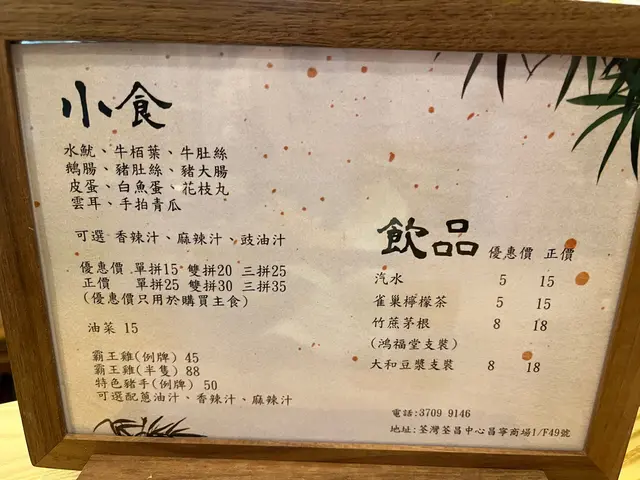 小食
水魷、牛栢葉、牛肚絲
鵝腸、豬肚絲、豬大腸
皮蛋、白魚蛋、花枝丸
雲耳、手拍青瓜
可選 香辣汁、麻辣汁、豉油汁
優惠價 單拼15 雙拼20 三拼25
正價 單拼25 雙拼30 三拼35
(優惠價只用於購買主食)
油菜 15
霸王雞(例牌) 45
霸王雞(半隻) 88
特色豬手(例牌) 50
可選配蔥油汁、香辣汁、麻辣汁
飲品 優惠價 正價
汽水 5 15
雀巢檸檬茶 5 15
竹蔗茅根 8 18
(鴻福堂支裝)
大和豆漿支裝 8 18
電話:3709 9146
地址:荃灣荃昌中心昌寧商場1/F49號